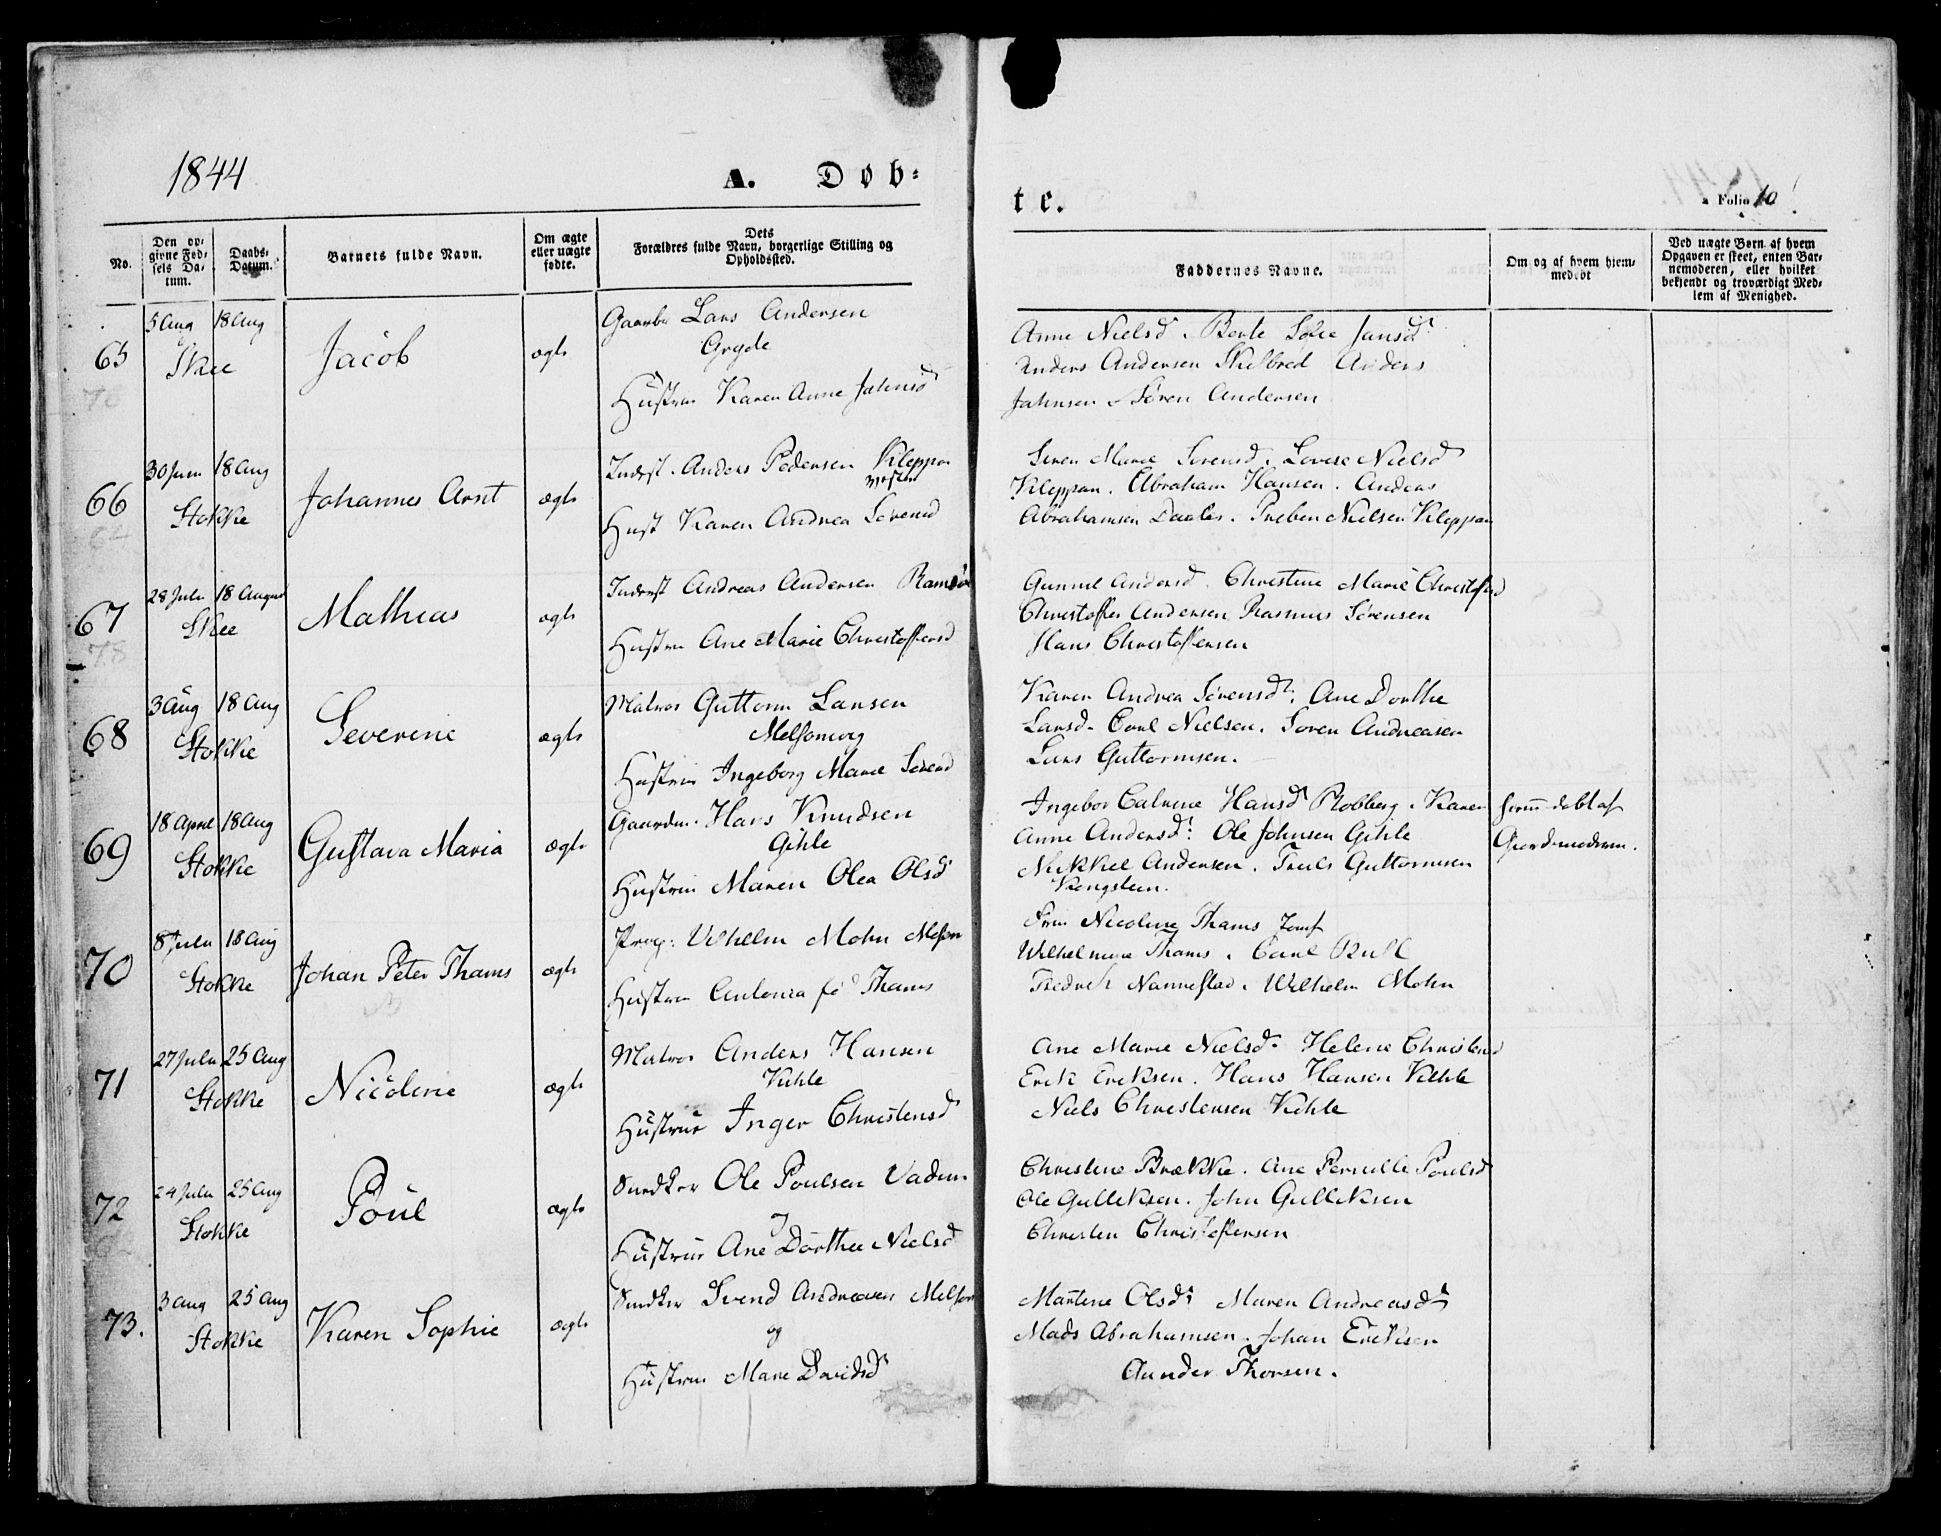 1844
A. Døb-
te.
Folio 10
No.
Den op-
givne Fød-
sels Da-
tum.
Daabs-
Datum.
Barnets fulde Navn.
Om ægte
eller uægte
fødte.
Dets
Forældres fulde Navn, borgerlige Stilling og
Opholdssted.
Faddernes Navne.
Om og af hvem hjem-
medøbt
Ved uægte Børn af hvem
Opgaven er skeet, enten Bar-
nemoderen, eller hvilket
bekjendt og troværdigt Med-
lem af Menighed.
65
5 Aug 18 Aug
Skee
Jacob
ægte
Gaarbr Lars Andersen
Gryde
Hustru Karen Anne Jahnsd
Anne Nielsd. Berte Sofie Jansd
Anders Andersen Skelbred Anders
Jahnsen Søren Andersen
66
30 Juni 18 Aug
Stokke
Johannes Arnt
ægte
Inderst. Anders Pedersen Kleppan
vestre
Hust Karen Andrea Sørensd
Seren Marie Sørensd. Lovise Nielsd
Kleppan. Abraham Hansen. Anders
Abrahamsen Daales. Preben Nielsen Kleppan
67
28 Juli 18 August
Skee
Mathias
ægte
Inderst Andreas Andersen
Hustru Ane Marie Christoffersd
Gunnil Andersd. Christine Marie Christoffersd
Christoffer Andersen Rasmus Sørensen
Hans Christoffersen
68
3 Aug 18 Aug
Stokke
Severine
ægte
Matros Guttorm Larsen
Melsomvig
Hustru Ingeborg Marie Sørensd
Karen Andrea Sørensd. Ane Dorthe
Larsd. Carl Nielsen. Soren Andreasen
Lars Guttormsen.
69
18 April 18 Aug
Stokke
Gustava Maria
ægte
Gaardm. Hans Knudsen
Gihle
Hustru Maren Olea Olsd
Ingebor Catrine Hansd Robberg. Karen
Anne Andersd. Ole Johnsen Gihle
Nikkel Andersen. Truls Guttormsen
Vengsteen.
hiem døbt af
Giordmodern.
70
8 Juli 18 Aug
Stokke
Johan Peter Thams
ægte
Prop: Vilhelm Mohn Melsom
Hustru Antonia fød Thams
Fru Nicoline Thams Jomf
Wilhelmine Thams. Carl Bull
Fredrek Nannestad. Wilhelm Mohn
71
27 Juli 25 Aug
Stokke
Nicoline
ægte
Matros Anders Hansen
Vihle
Hustrue Inger Christensd
Ane Marie Nielsd. Helene Christensd
Erik Eriksen. Hans Hansen Vihle
Niels Christensen Vihle
72
24 Juli 25 Aug
Stokke
Poul
ægte
Snedker Ole Poulsen Vadum
Hustrue Ane Dorthea Nielsd
Christine Brække. Ane Pernille Poulsd
Ole Gulliksen. John Gulliksen
Christen Christoffersen
73.
3 Aug 25 Aug
Stokke
Karen Sophie
ægte
Snedker Svend Andreasen Melsom
og
Hustrue Marie Davidsd
Martine Olsd. Maren Andreasd
Mads Abrahamsen. Johan Eriksen
Gunder Thorsen.